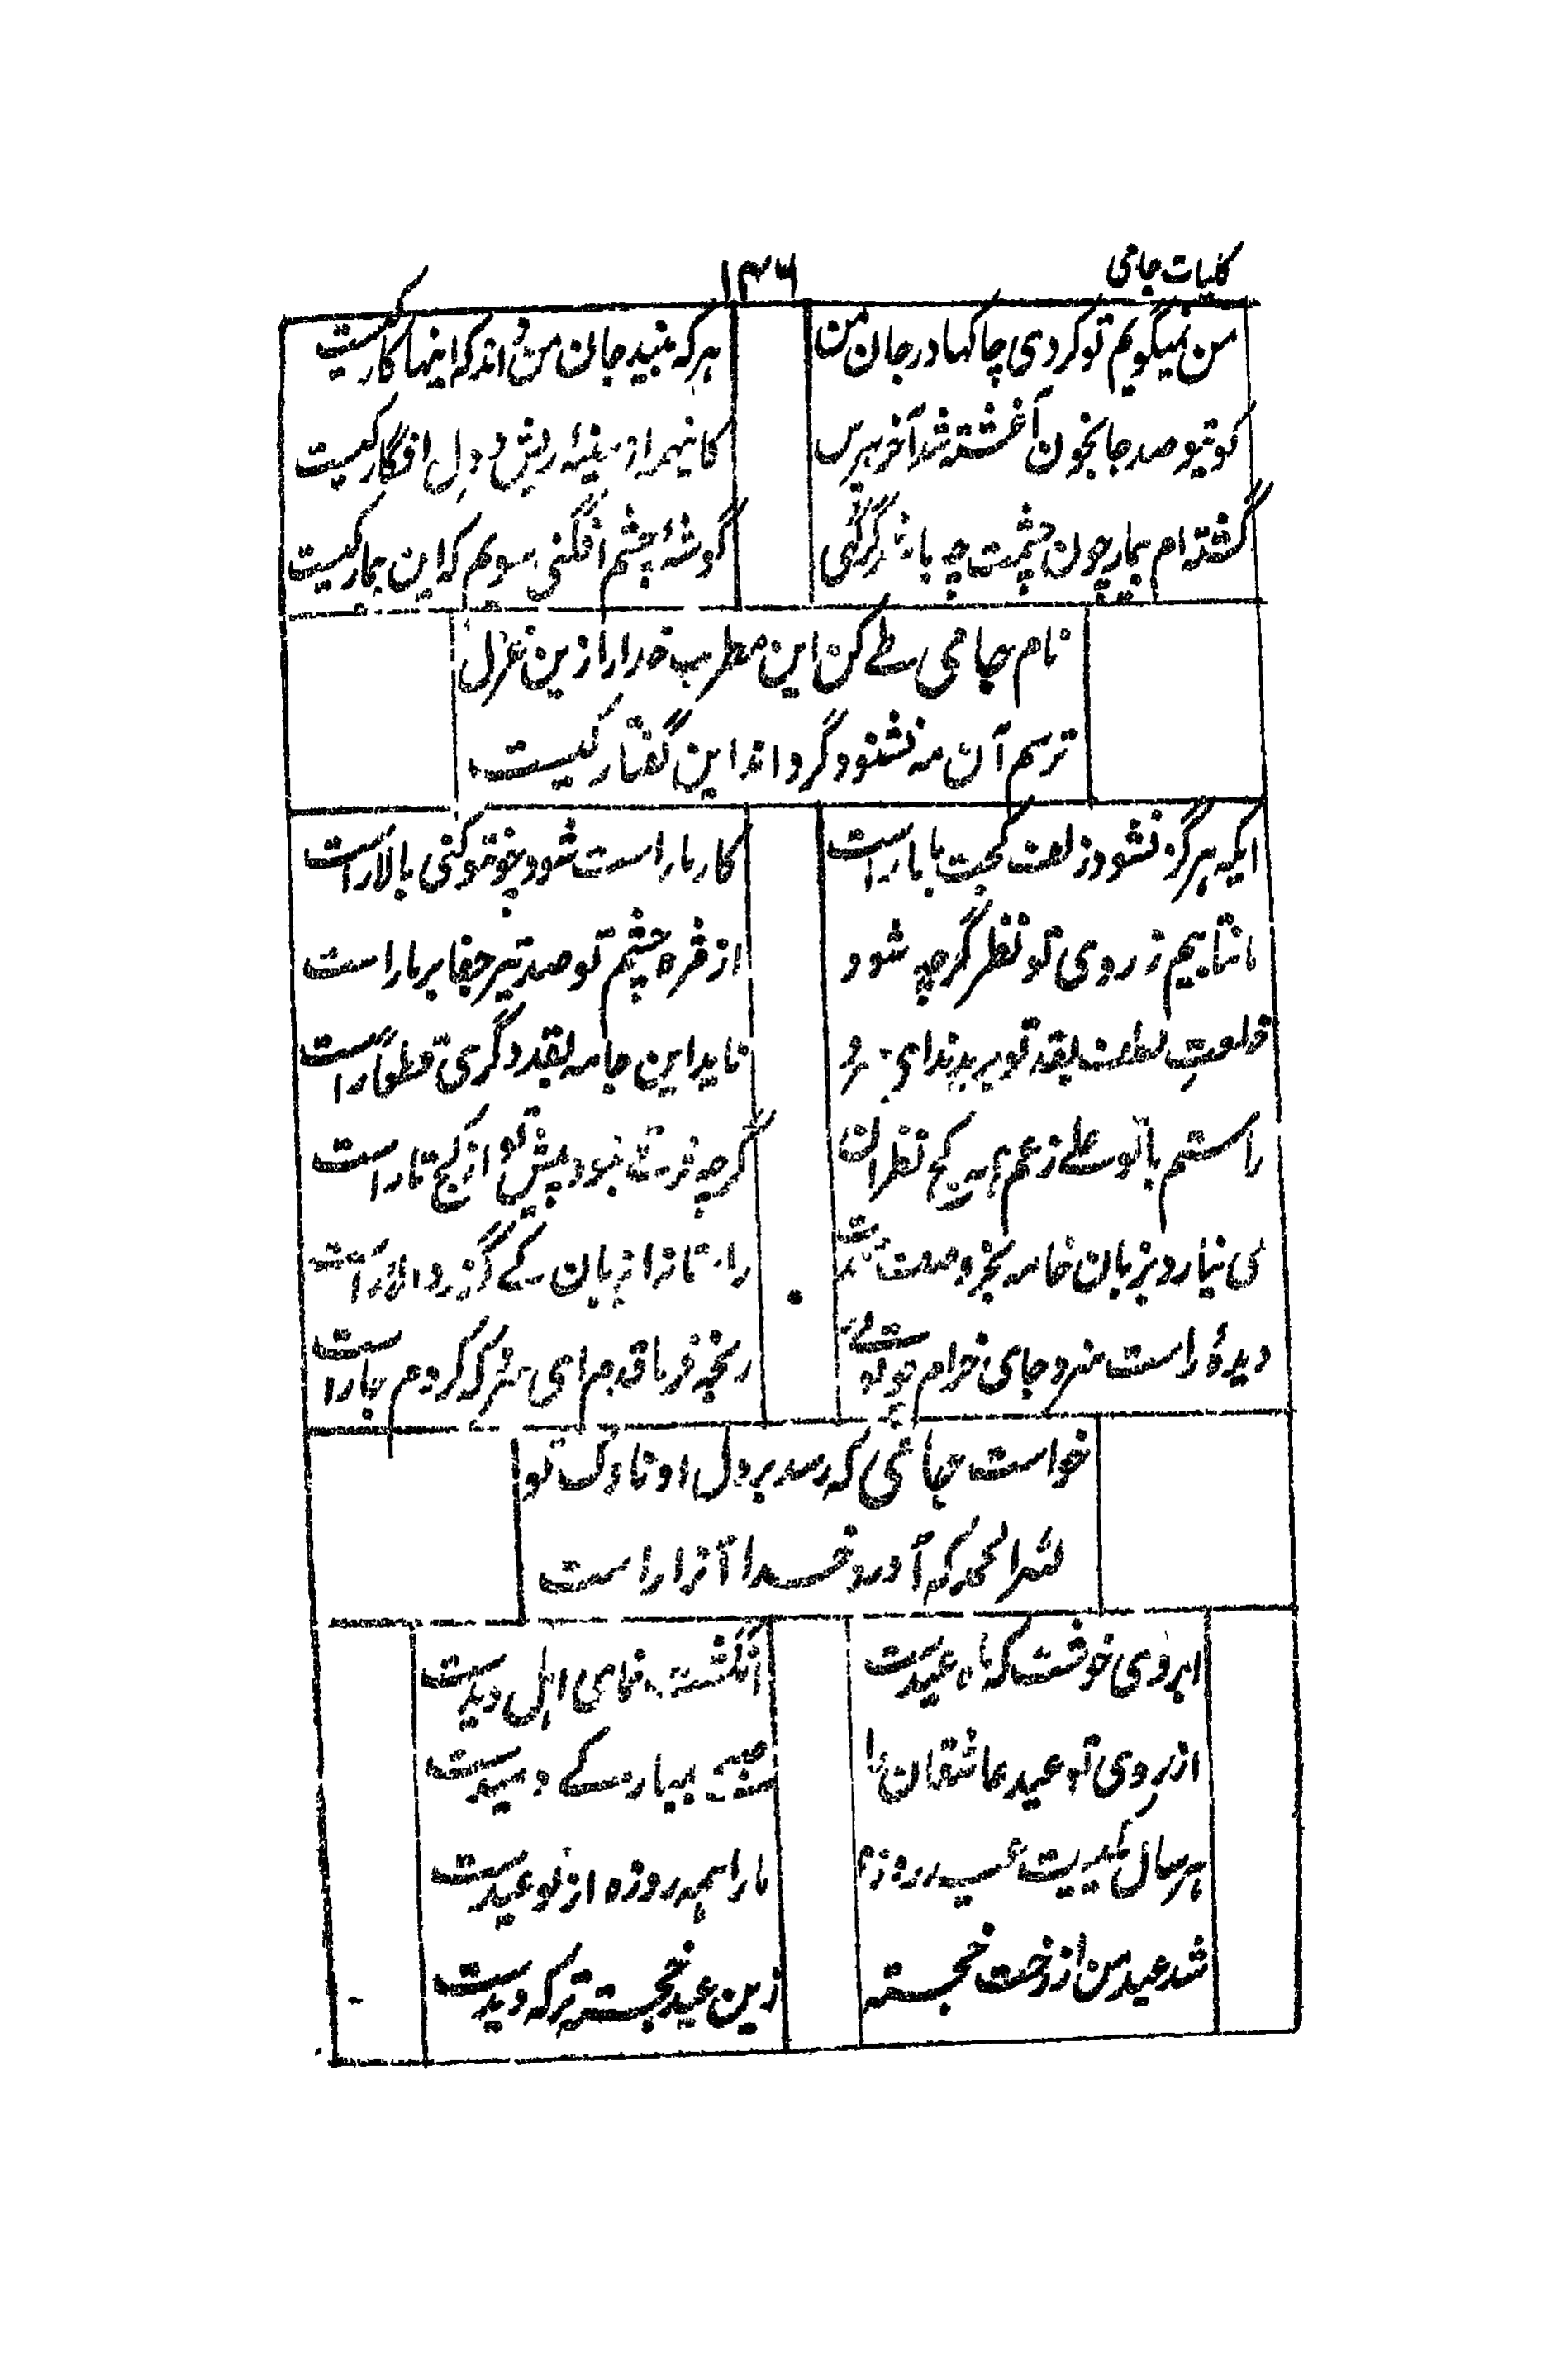 کلیات جامی
۱۴۶
من نمیگویم تو کردی چاکها در جان من
هر که بیند جان من داند که اینها کار کیست
کوی تو صد جا بخون آغشته شد آخر بپرس
کاینهمه از سینهٔ ریش و دل افگار کیست
گشته ام بیمار چون چشمت چه باشد گر گهی
گوشهٔ چشم افگنی سویم که این بیمار کیست
نام جامی طے کن این مطرب خدا را از ین غزل
ترسم آن مه نشنود گر داند این گفتار کیست
ایکه هرگز نشود زلف کجت با ما راست
کار ما راست شود چو تو کنی بالا راست
ما نتابیم ز روی تو نظر گرچه شود
از مژه چشم تو صد تیر جفا بر ما راست
خلعتِ لطف بقد تو بریدند ای
ناید این جامه بقد دگری قطعا راست
راستم با تو علے زعم همه کج نظران
گرچه فرقے نبود پیش تو از کج تا راست
می نیارد بزبان خامه بجز وصف
راستانرا زبان کے گذرد الا راست
دیدهٔ راست منم و جای خرام چو توئی
رنجه فرما قدم ای که کردم جا راست
خواست جامی که رسد بر دل او ناوک تو
لله الحمد که آورد خدا آنرا راست
ابروی خوشت که ماه عیدست
انگشت نمای اهل دیدست
از روی تو عید عاشقان را
صبح بمبارکے دمیدست
هر سال یکیست عید روزه
ما را همه روزه از تو عیدست
شد عید من از رخت خجسته
زین عید خجسته تر که دیدست